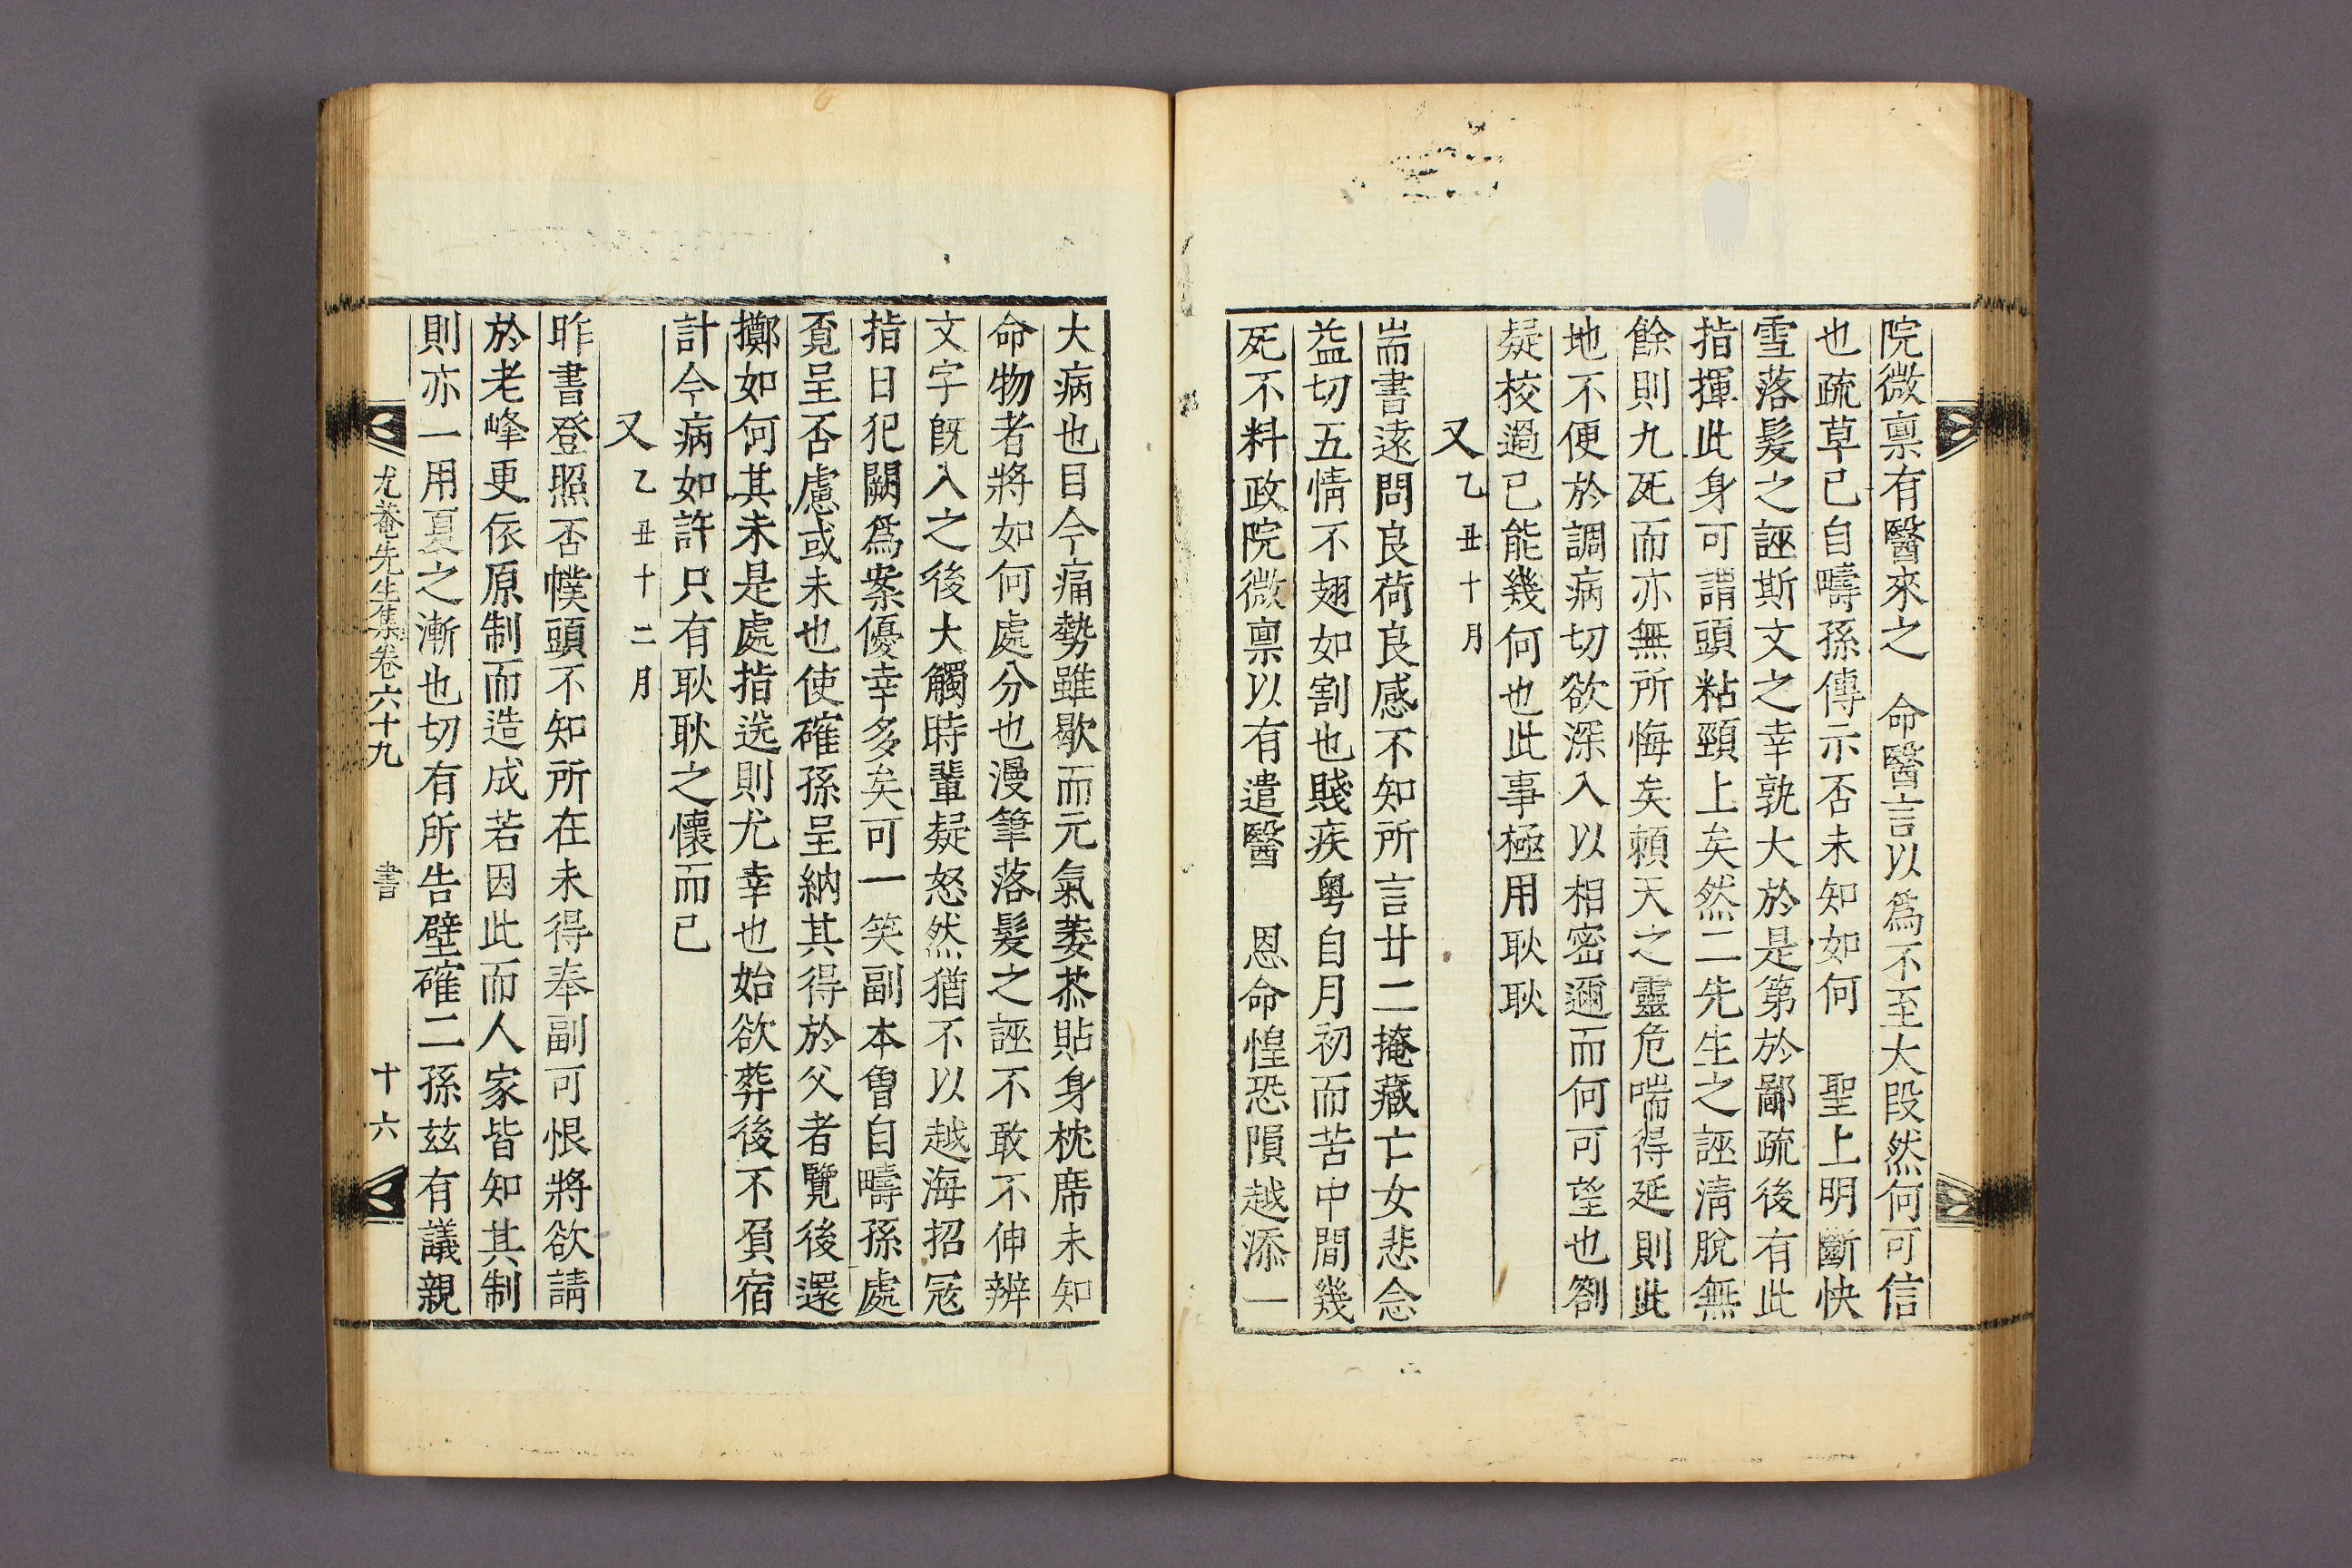 院微禀有醫來之　命醫言以爲不至大段然何可信
也疏草已自疇孫傳示否未知如何　聖上明斷快
雪落髮之誣斯文之幸孰大於是第於鄙疏後有此
指揮此身可謂頭粘頸上矣然二先生之誣淸脫無
餘則九死而亦無所悔矣賴天之靈危喘得延則此
地不便於調病切欲深入以相密邇而何可望也劄
疑校過已能幾何也此事極用耿耿
又乙丑十月
耑書遠問良荷良感不知所言廿二掩藏亡女悲念
益切五情不翅如割也賤疾粤自月初而苦中間幾
死不料政院微禀以有遣醫　恩命惶恐隕越添一
大病也目今痛勢雖歇而元氣萎苶貼身枕席未知
命物者將如何處分也漫筆落髮之誣不敢不伸辨
文字旣入之後大觸時輩疑怒然猶不以越海招寇
指日犯闕爲案優幸多矣可一笑副本曾自疇孫處
覔呈否慮或未也使確孫呈納其得於父者覽後還
擲如何其未是處指迭則尤幸也始欲葬後不負宿
計今病如許只有耿耿之懷而已
又乙丑十二月
昨書登照否幞頭不知所在未得奉副可恨將欲請
於老峰更依原制而造成若因此而人家皆知其制
則亦一用夏之漸也切有所告壁確二孫玆有議親
尤菴先生集卷六十九　書　十六